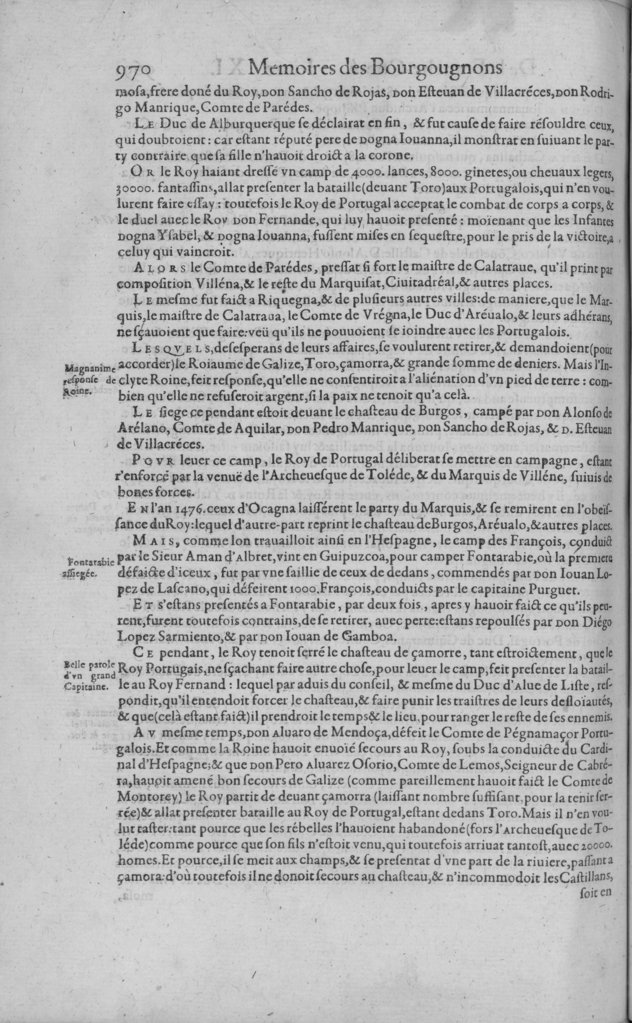 970 Memoires des Bourgougnons
mosa, frere doné du Roy, Don Sancho de Rojas, Don Esteuan de Villacréces, Don Rodri-
go Manrique, Comte de Parédes.
LE Duc de Alburquerque se déclairat en fin, & fut cause de faire résouldre ceux,
qui doubtoient: car estant réputé pere de Dogna Iouanna, il monstrat en suiuant le par-
ty contraire que sa fille n'hauoit droict a la corone.
OR le Roy haiant dressé vn camp de 4000. lances, 8000. ginetes, ou cheuaux legers,
30000. fantassins, allat presenter la bataille (deuant Toro) aux Portugalois, qui n'en vou-
lurent faire essay: toutefois le Roy de Portugal acceptat le combat de corps a corps, &
le duel auec le Roy Don Fernande, qui luy hauoit presenté: moienant que les Infantes
Dogna Ysabel, & Dogna Iouanna, fussent mises en sequestre, pour le pris de la victoire, a
celuy qui vaincroit.
ALORS le Comte de Parédes, pressat si fort le maistre de Calatraue, qu'il print par
composition Villéna, & le reste du Marquisat, Ciuitadréal, & autres places.
LE mesme fut faict a Riquegna, & de plusieurs autres villes: de maniere, que le Mar-
quis, le maistre de Calatraua, le Comte de Vrégna, le Duc d'Aréualo, & leurs adhérans,
ne sçauoient que faire: veu qu'ils ne pouuoient se ioindre auec les Portugalois.
LESQVELS, desesperans de leurs affaires, se voulurent retirer, & demandoient (pour
accorder) le Roiaume de Galize, Toro, çamorra, & grande somme de deniers. Mais l'In-
Magnanime
response de
Roine.
clyte Roine, feit response, qu'elle ne consentiroit a l'aliénation d'vn pied de terre: com-
bien qu'elle ne refuseroit argent, si la paix ne tenoit qu'a celà.
LE siege ce pendant estoit deuant le chasteau de Burgos, campé par Don Alonso de
Arélano, Comte de Aquilar, Don Pedro Manrique, Don Sancho de Rojas, & D. Esteuan
de Villacréces.
POVR leuer ce camp, le Roy de Portugal déliberat se mettre en campagne, estant
r'enforcé par la venue de l'Archeuesque de Toléde, & du Marquis de Villéne, suiuis de
bones forces.
EN l'an 1476. ceux d'Ocagna laissérent le party du Marquis, & se remirent en l'obeis-
sance du Roy: lequel d'autre-part reprint le chasteau de Burgos, Aréualo, & autres places.
MAIS, comme lon trauailloit ainsi en l'Hespagne, le camp des François, conduit
Fontarabie
assiegée.
par le Sieur Aman d'Albret, vint en Guipuzcoa, pour camper Fontarabie, où la premiere
défaicte d'iceux, fut par vne saillie de ceux de dedans, commendés par Don Iouan Lo-
pez de Lascano, qui défeirent 1000. François, conduicts par le capitaine Purguet.
ET s'estans presentés a Fontarabie, par deux fois, apres y hauoir faict ce qu'ils peu-
rent, furent toutefois contrains, de se retirer, auec perte: estans repoulsés par Don Diégo
Lopez Sarmiento, & par Don Iouan de Gamboa.
CE pendant, le Roy tenoit serré le chasteau de çamorre, tant estroictement, que le
Belle parole
d'vn grand
Capitaine.
Roy Portugais, ne sçachant faire autre chose, pour leuer le camp, feit presenter la batail-
le au Roy Fernand: lequel par aduis du conseil, & mesme du Duc d'Alue de Liste, res-
pondit, qu'il entendoit forcer le chasteau, & faire punir les traistres de leurs desloiautés,
& que (celà estant faict) il prendroit le temps & le lieu, pour ranger le reste de ses ennemis.
AV mesme temps, Don Aluaro de Mendoça, défeit le Comte de Pégnamaçor Portu-
galois. Et comme la Roine hauoit enuoié secours au Roy, soubs la conduicte du Cardi-
nal d'Hespagne: & que Don Pero Aluarez Osorio, Comte de Lemos, Seigneur de Cabré-
ra, hauoit amené bon secours de Galize (comme pareillement hauoit faict le Comte de
Montorey) le Roy partit de deuant çamorra (laissant nombre suffisant, pour la tenir ser-
rée) & allat presenter bataille au Roy de Portugal, estant dedans Toro. Mais il n'en vou-
lut taster: tant pource que les rébelles l'hauoient habandoné (fors l'Archeuesque de To-
léde) comme pource que son fils n'estoit venu, qui toutefois arriuat tantost, auec 20000.
homes. Et pource, il se meit aux champs, & se presentat d'vne part de la riuiere, passant a
çamora: d'où toutefois il ne donoit secours au chasteau, & n'incommodoit les Castillans,
soit en